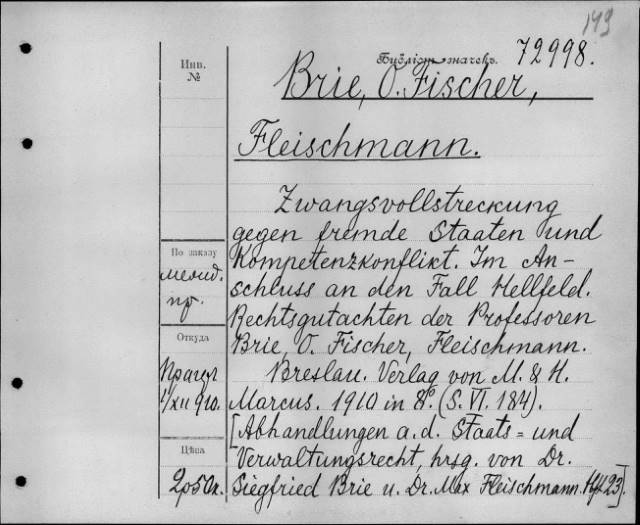 149
Библіот. значекъ. 72998.
Инв.
№
Brie, O. Fischer,
Fleischmann.
Zwangsvollstreckung
gegen fremde Staaten und
Kompetenzkonflikt. Im An-
schluss an den Fall Hellfeld.
Rechtsgutachten der Professoren
Brie, O. Fischer, Fleischmann.
Breslau. Verlag von M. & H.
Marcus. 1910 in 8º. (S. VI. 184).
[Abhandlungen a. d. Staats= und
Verwaltungsrecht, hrsg. von Dr.
Siegfried Brie u. Dr. Max Fleischmann. Hft 23].
По заказу
пр.
Откуда
/XII 910.
Цѣна
2р50к.